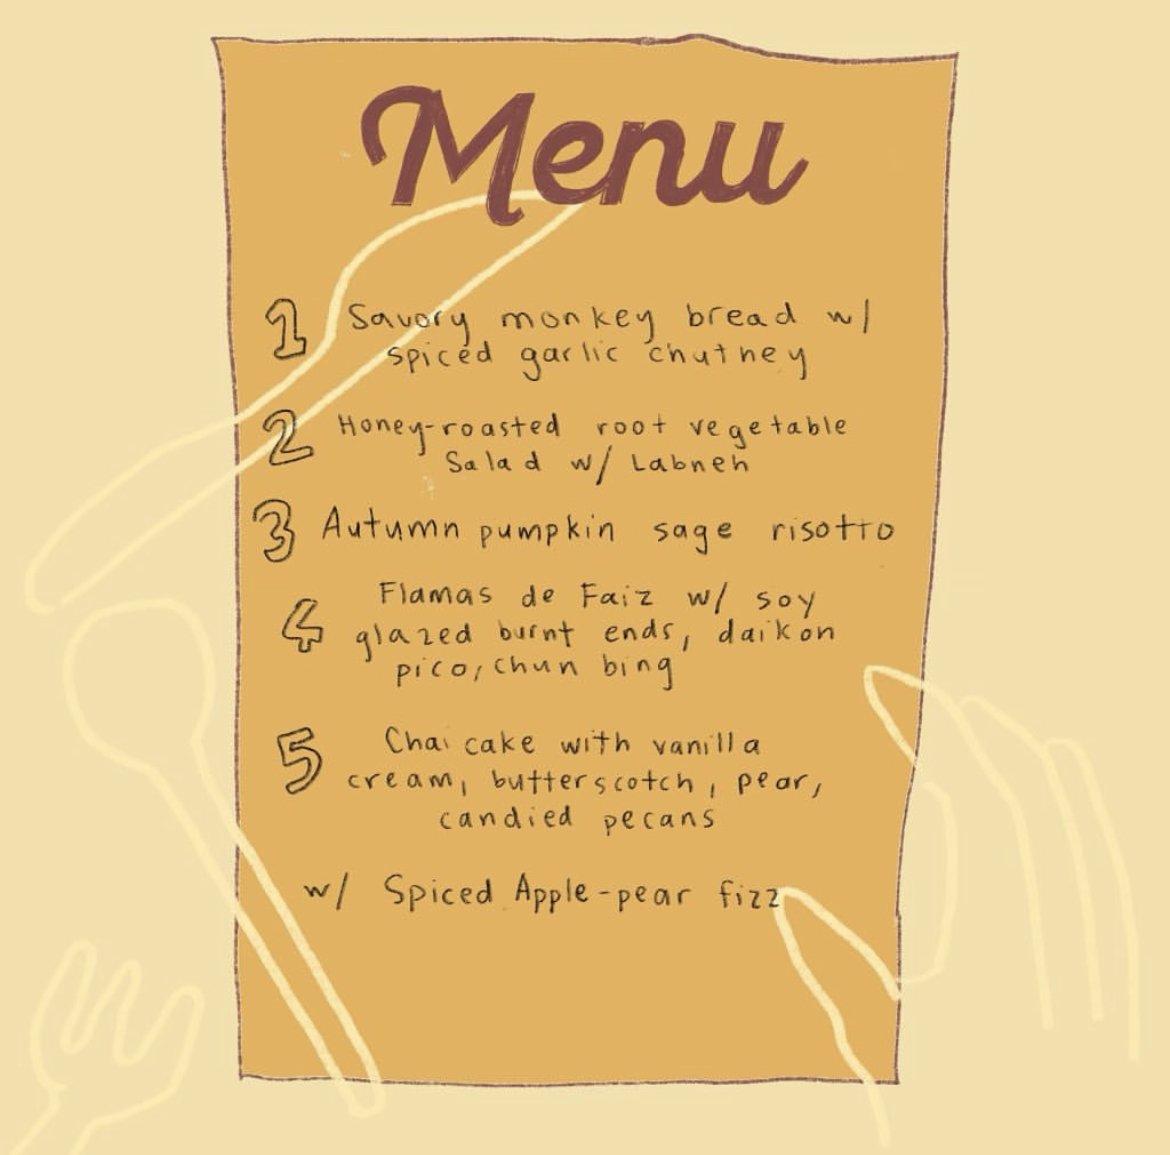 Menu
1 Savory monkey bread w/
spiced garlic chutney
2 Honey-roasted root vegetable
Salad w/ Labneh
3 Autumn pumpkin sage risotto
Flamas de Faiz w/ soy
4 glazed burnt ends, daikon
pico, chun bing
5 Chai cake with vanilla
cream, butterscotch, pear,
candied pecans
w/ Spiced Apple-pear fizz